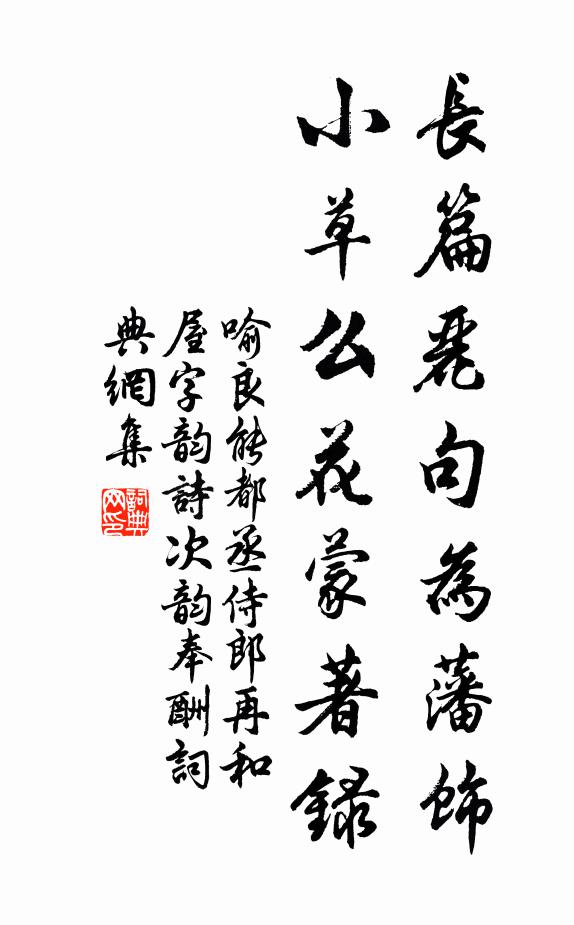 長篇麗句為藩飾
小草么花蒙著録
喻良能都丞侍郎再和
屋字韵詩次韵奉酬詞
典網集
詞典網印